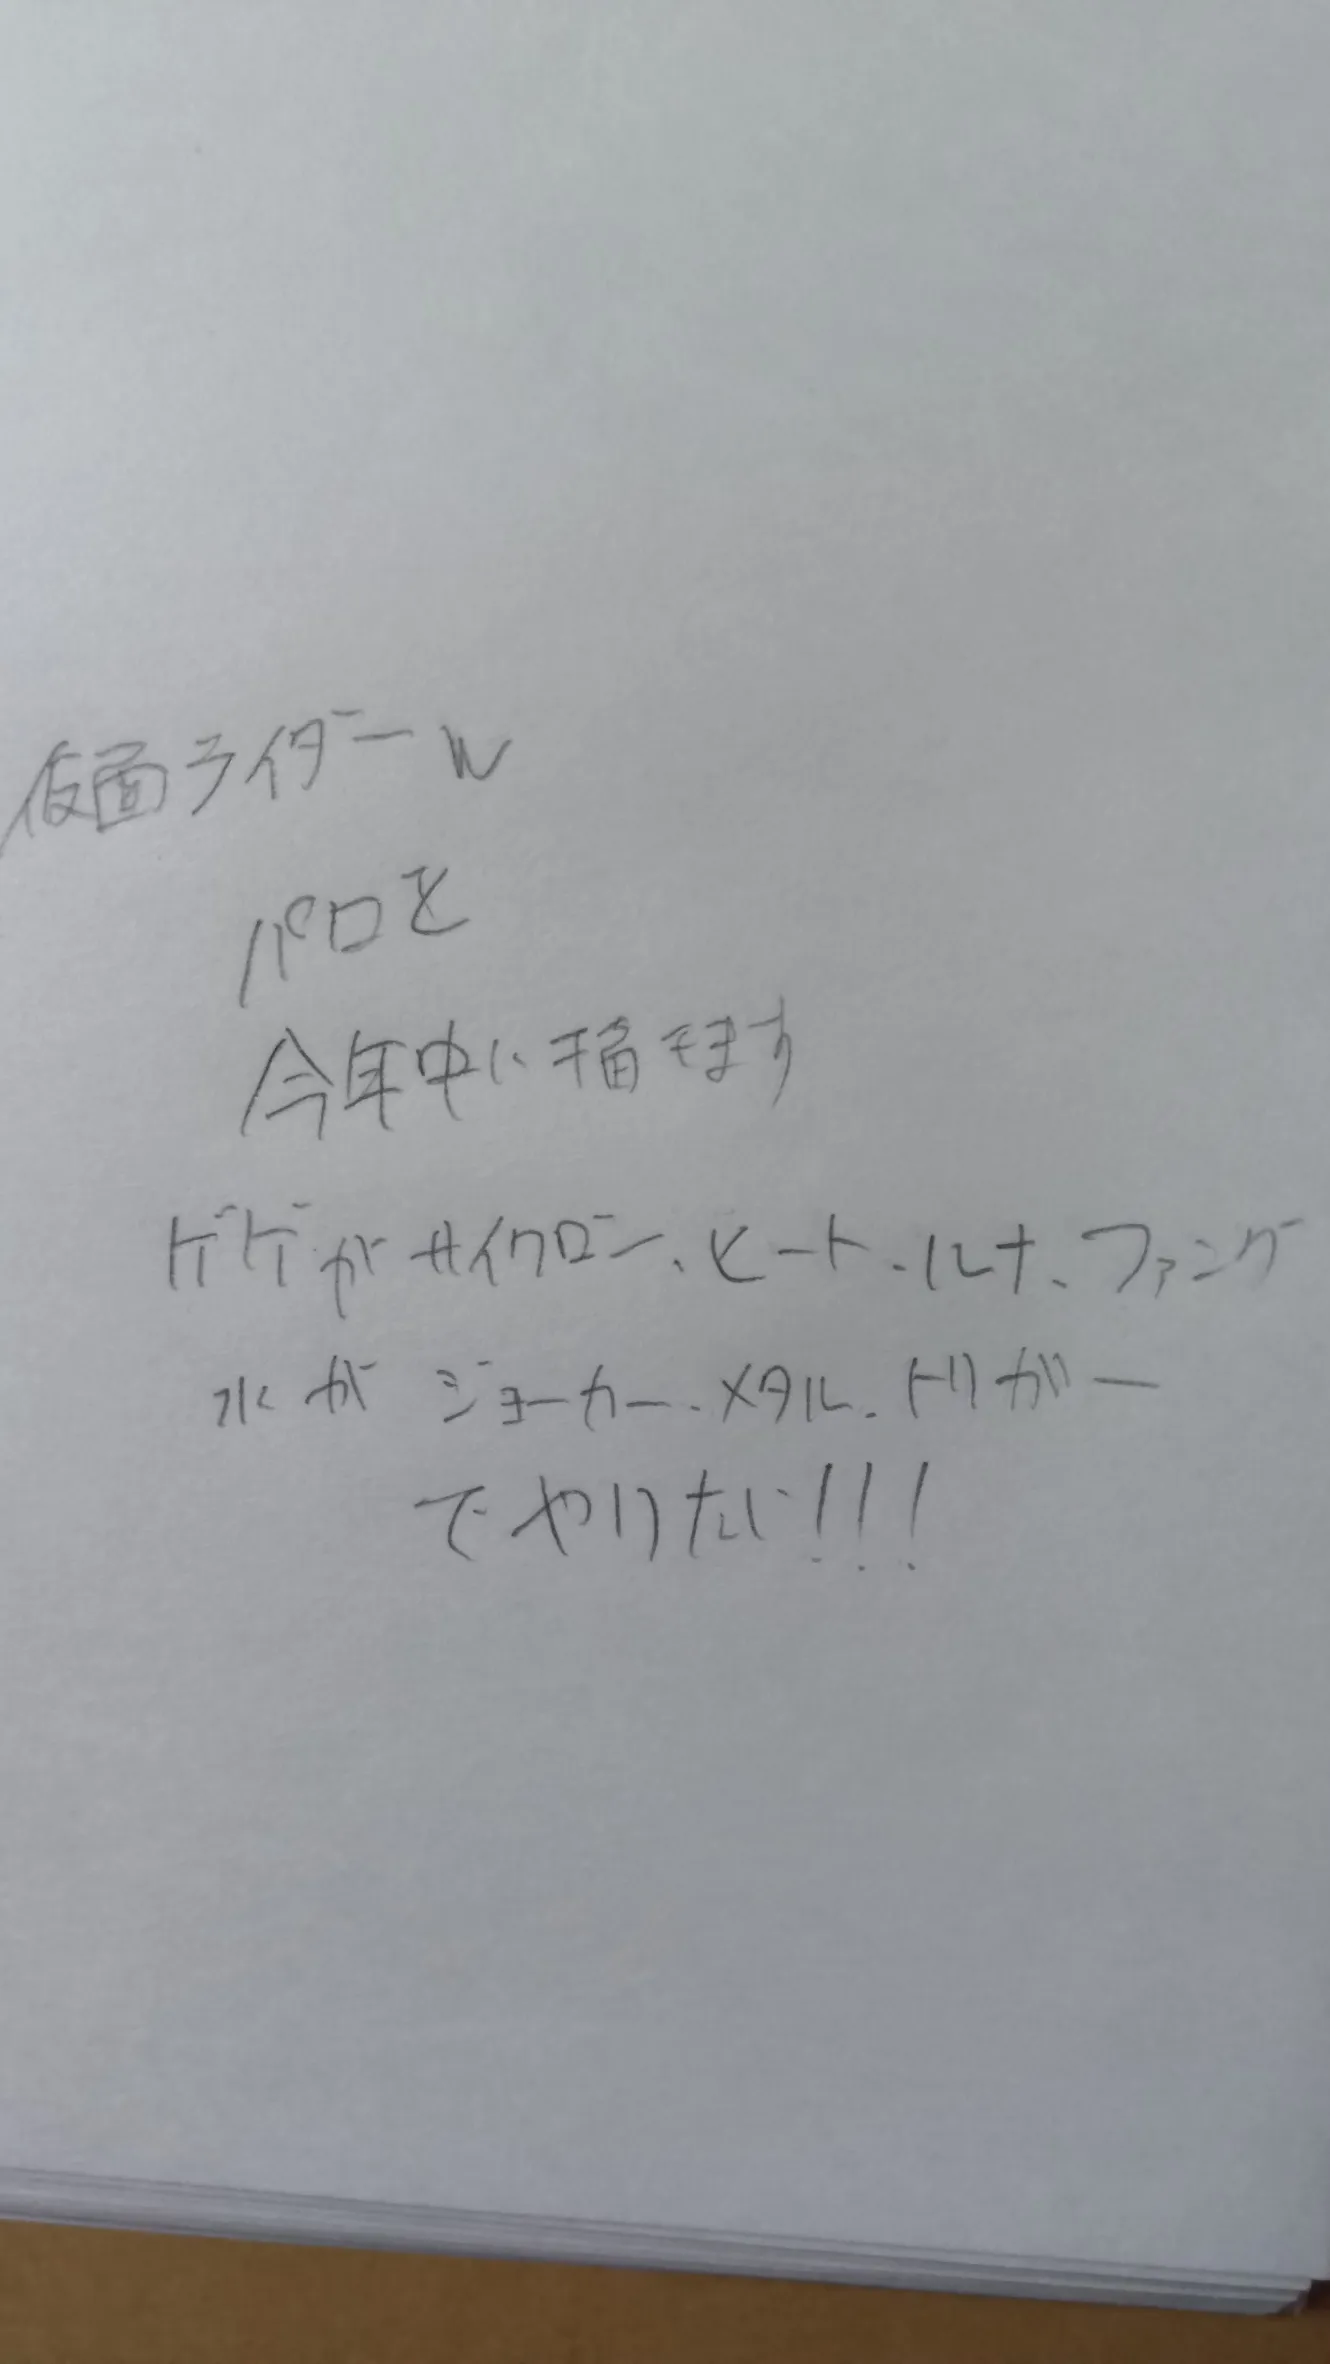 仮面ライダーW
パロを
今年中に描きます
ゲゲがサイクロン、ヒート、ルナ、ファング
水がジョーカー、メタル、トリガー
でやりたい!!!